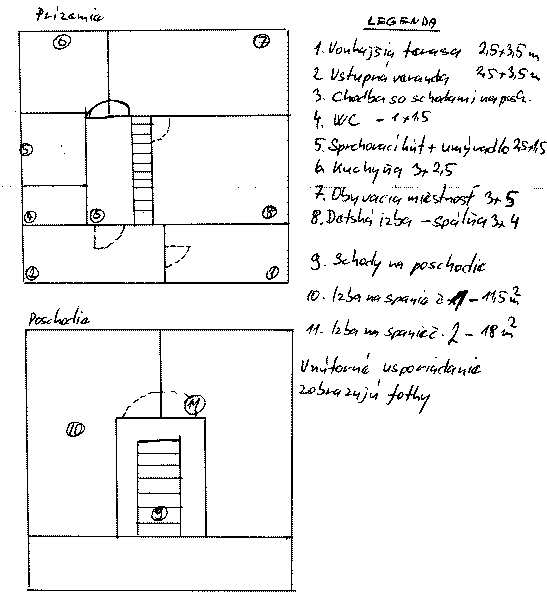 Prízemia
6
7
5
4
3
8
2
1
Poschodia
10
11
9
LEGENDA
1. Vonkajšia terasa 2,5+3,5 m
2 Vstupná veranda 2,5+3,5 m
3. Chodba so schodami na posch.
4. WC - 1+1,5
5. Sprchovací kút + umývadlo 2,5+1,5
6. Kuchyňa 3+2,5
7. Obývacia miestnosť 3+5
8. Detská izba - spálňa 3x4
9. Schody na poschodie
10. Izba na spanie č. 1 - 11,5 m²
11. Izba na spanie č. 2 - 18 m²
Vnútorné usporiadanie
zobrazujú fotky